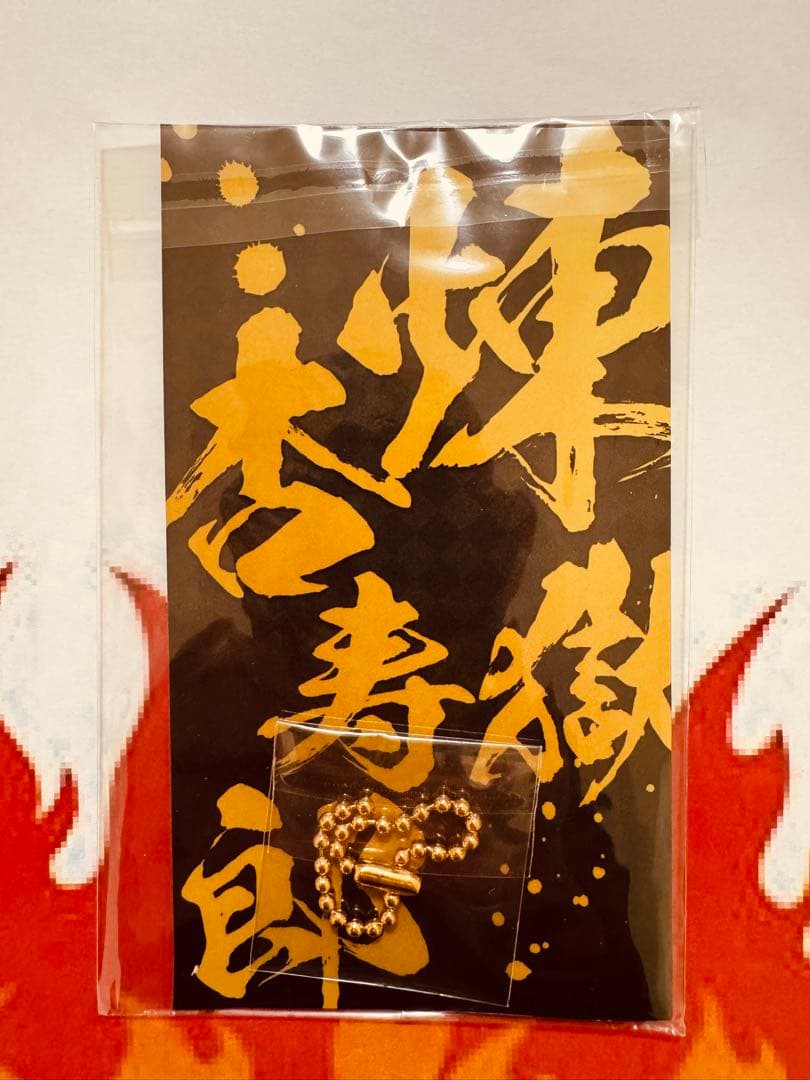 煉獄
杏寿郎